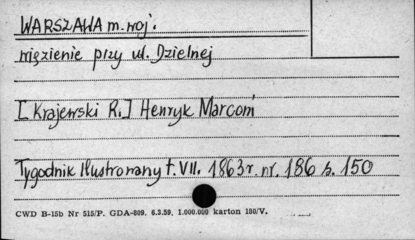 WARSZAWA m. woj.
więzienie przy ul. Dzielnej
[Krajewski R.] Henryk Marconi
Tygodnik Ilustrowany t. VII. 1863 r. nr. 186 s. 150
CWD B-15b Nr 515/P. GDA-809. 6.3.59. 1.000.000 karton 180/V.